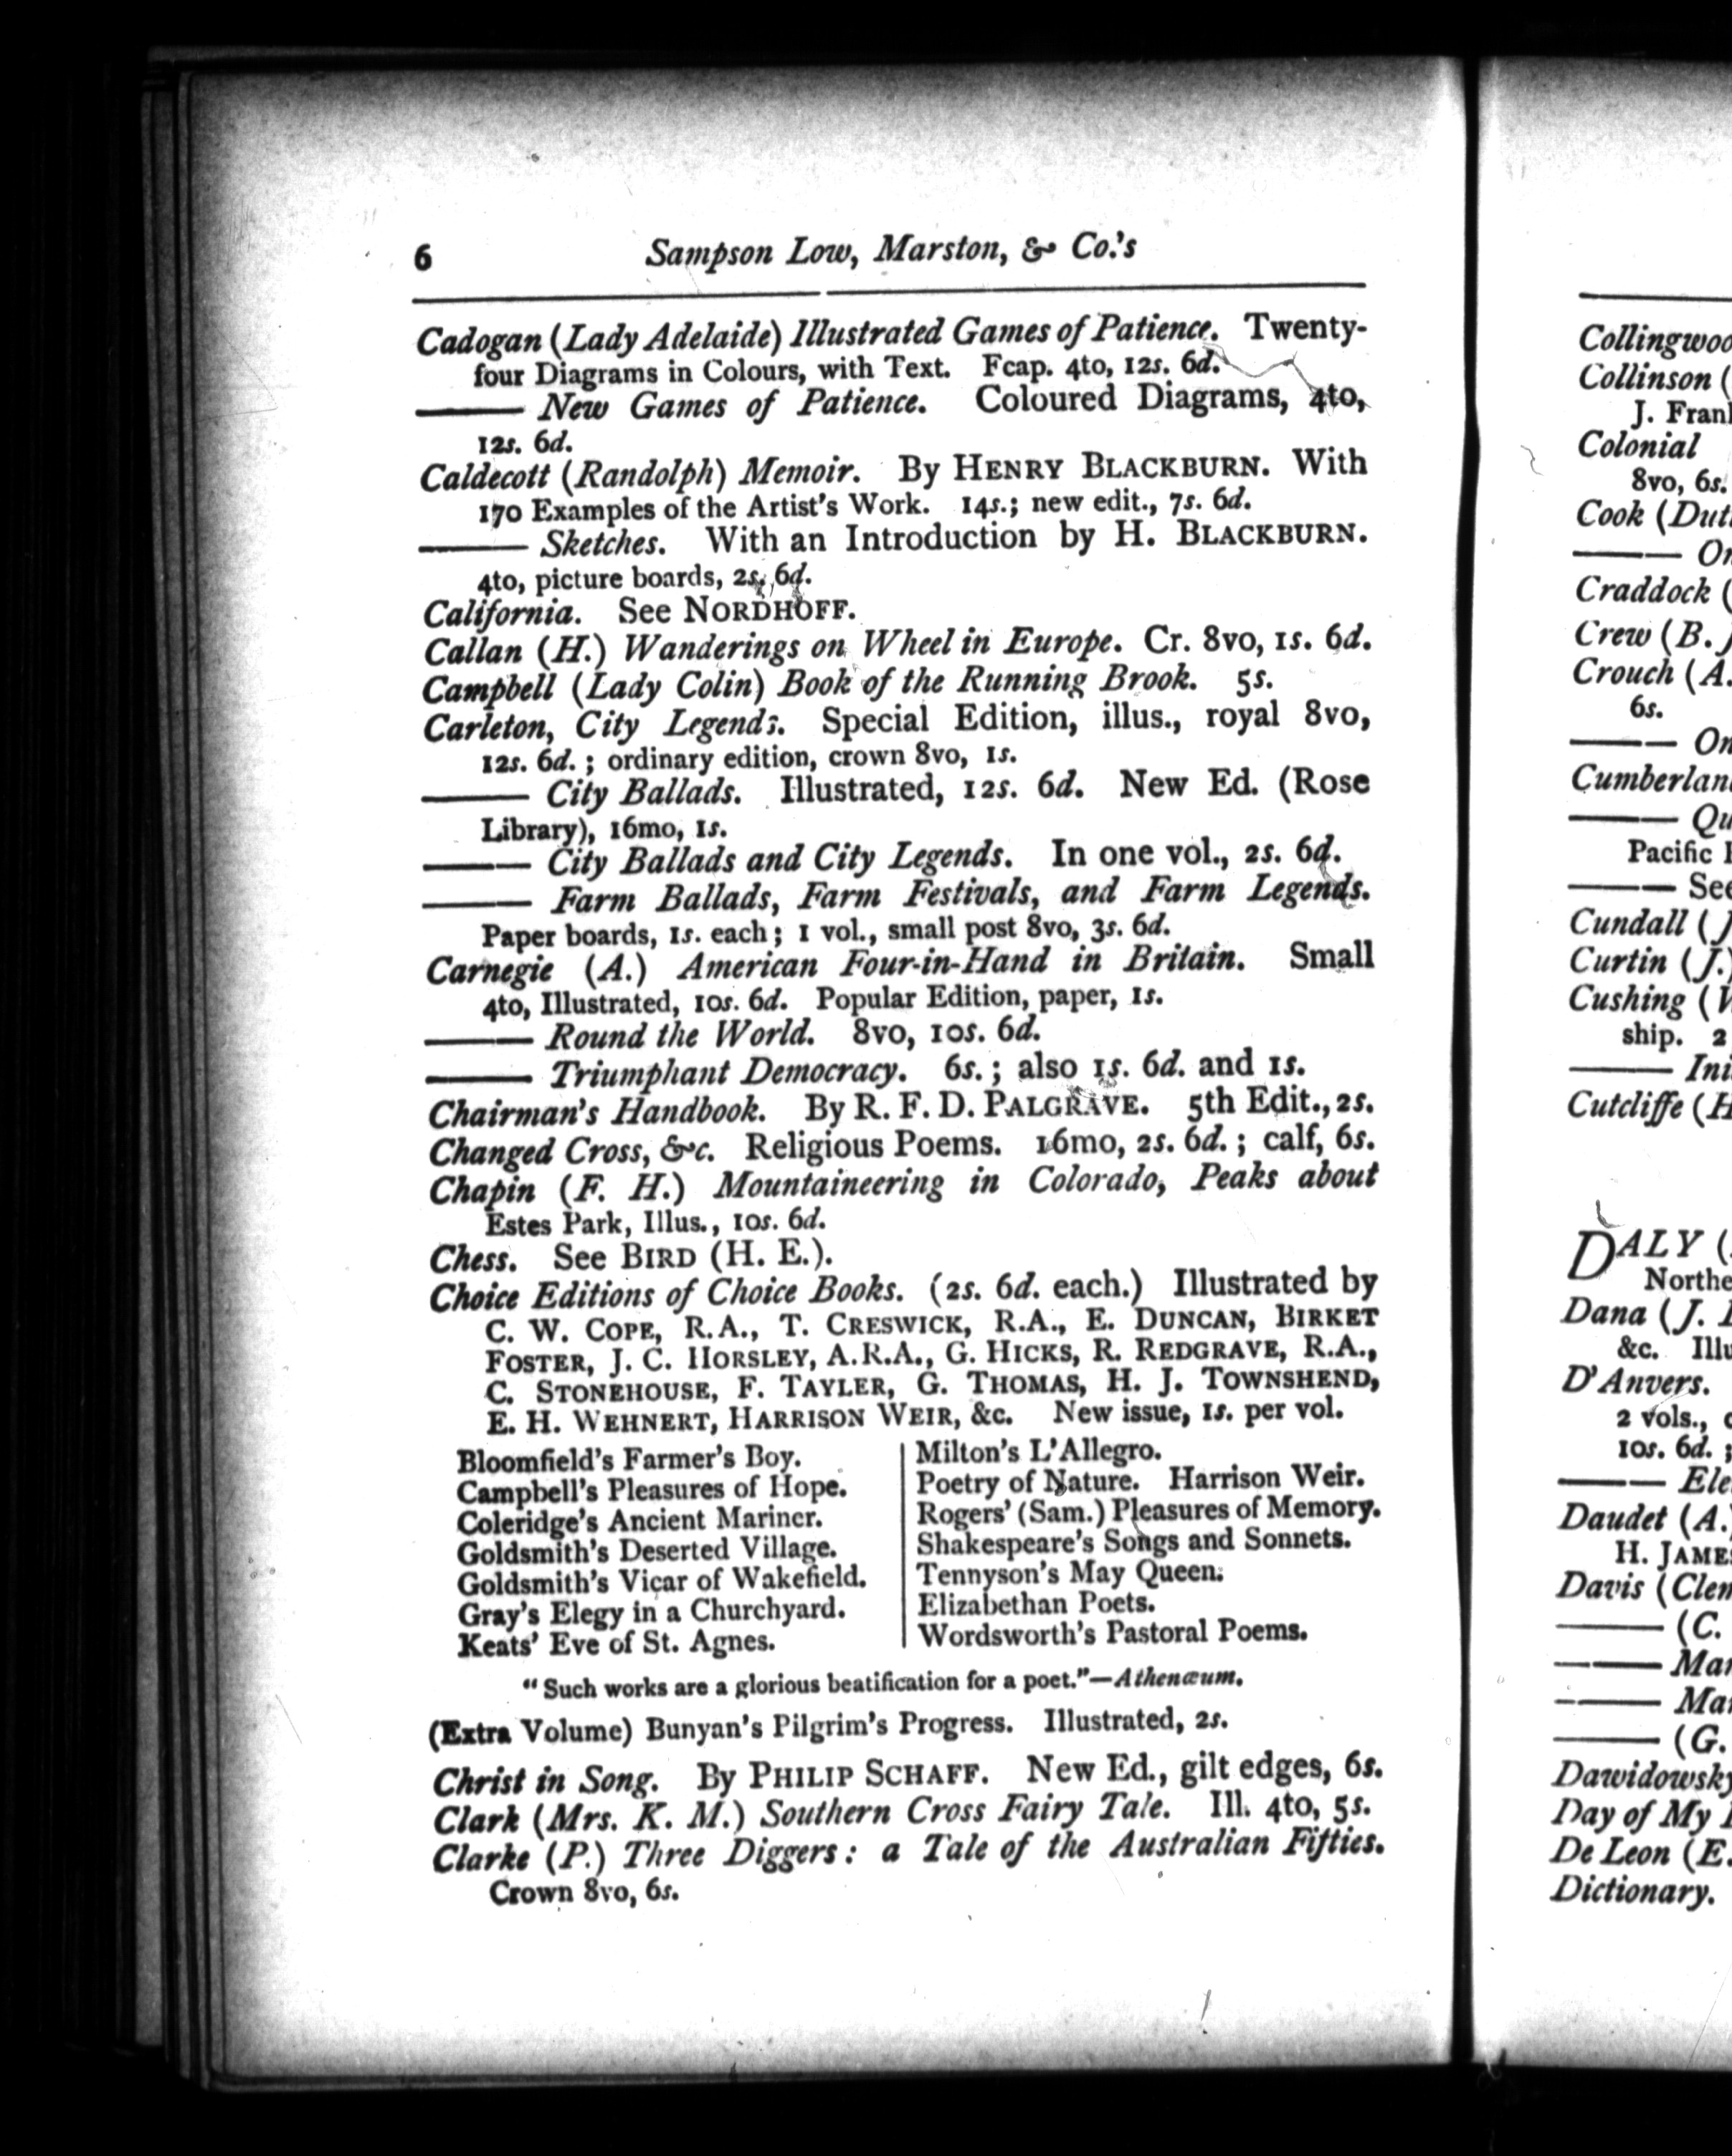 6 Sampson Low, Marston, & Co.'s
Cadogan (Lady Adelaide) Illustrated Games of Patience. Twenty-
four Diagrams in Colours, with Text. Fcap. 4to, 12s. 6d.
——— New Games of Patience. Coloured Diagrams, 4to,
12s. 6d.
Caldecott (Randolph) Memoir. By HENRY BLACKBURN. With
170 Examples of the Artist's Work. 14s.; new edit., 7s. 6d.
——— Sketches. With an Introduction by H. BLACKBURN.
4to, picture boards, 2s. 6d.
California. See NORDHOFF.
Callan (H.) Wanderings on Wheel in Europe. Cr. 8vo, 1s. 6d.
Campbell (Lady Colin) Book of the Running Brook. 5s.
Carleton, City Legends. Special Edition, illus., royal 8vo,
12s. 6d. ; ordinary edition, crown 8vo, 1s.
——— City Ballads. Illustrated, 12s. 6d. New Ed. (Rose
Library), 16mo, 1s.
——— City Ballads and City Legends. In one vol., 2s. 6d.
——— Farm Ballads, Farm Festivals, and Farm Legends.
Paper boards, 1s. each ; 1 vol., small post 8vo, 3s. 6d.
Carnegie (A.) American Four-in-Hand in Britain. Small
4to, Illustrated, 10s. 6d. Popular Edition, paper, 1s.
——— Round the World. 8vo, 10s. 6d.
——— Triumphant Democracy. 6s. ; also 1s. 6d. and 1s.
Chairman's Handbook. By R. F. D. PALGRAVE. 5th Edit., 2s.
Changed Cross, &c. Religious Poems. 16mo, 2s. 6d. ; calf, 6s.
Chapin (F. H.) Mountaineering in Colorado, Peaks about
Estes Park, Illus., 10s. 6d.
Chess. See BIRD (H. E.).
Choice Editions of Choice Books. (2s. 6d. each.) Illustrated by
C. W. COPE, R.A., T. CRESWICK, R.A., E. DUNCAN, BIRKET
FOSTER, J. C. HORSLEY, A.R.A., G. HICKS, R. REDGRAVE, R.A.,
C. STONEHOUSE, F. TAYLER, G. THOMAS, H. J. TOWNSHEND,
E. H. WEHNERT, HARRISON WEIR, &c. New issue, 1s. per vol.
Bloomfield's Farmer's Boy.
Campbell's Pleasures of Hope.
Coleridge's Ancient Mariner.
Goldsmith's Deserted Village.
Goldsmith's Vicar of Wakefield.
Gray's Elegy in a Churchyard.
Keats' Eve of St. Agnes.
Milton's L'Allegro.
Poetry of Nature. Harrison Weir.
Rogers' (Sam.) Pleasures of Memory.
Shakespeare's Songs and Sonnets.
Tennyson's May Queen.
Elizabethan Poets.
Wordsworth's Pastoral Poems.
“Such works are a glorious beatification for a poet.”—Athenæum.
(Extra Volume) Bunyan's Pilgrim's Progress. Illustrated, 2s.
Christ in Song. By PHILIP SCHAFF. New Ed., gilt edges, 6s.
Clark (Mrs. K. M.) Southern Cross Fairy Tale. Ill. 4to, 5s.
Clarke (P.) Three Diggers : a Tale of the Australian Fifties.
Crown 8vo, 6s.
Collinson (
Colonial
8vo, 6s.
Cook (
Craddock (
Crew (B.
Crouch (A.
6s.
Pacific
Cundall (
Curtin (J.)
Cushing (
ship. 2
Cutcliffe (H
DALY (
Dana (J.
&c.
D'Anvers.
2 vols.,
10s. 6d. ;
Daudet (A.
Davis (
——— (C.
——— (G.
Day of My
De Leon (E.
Dictionary.